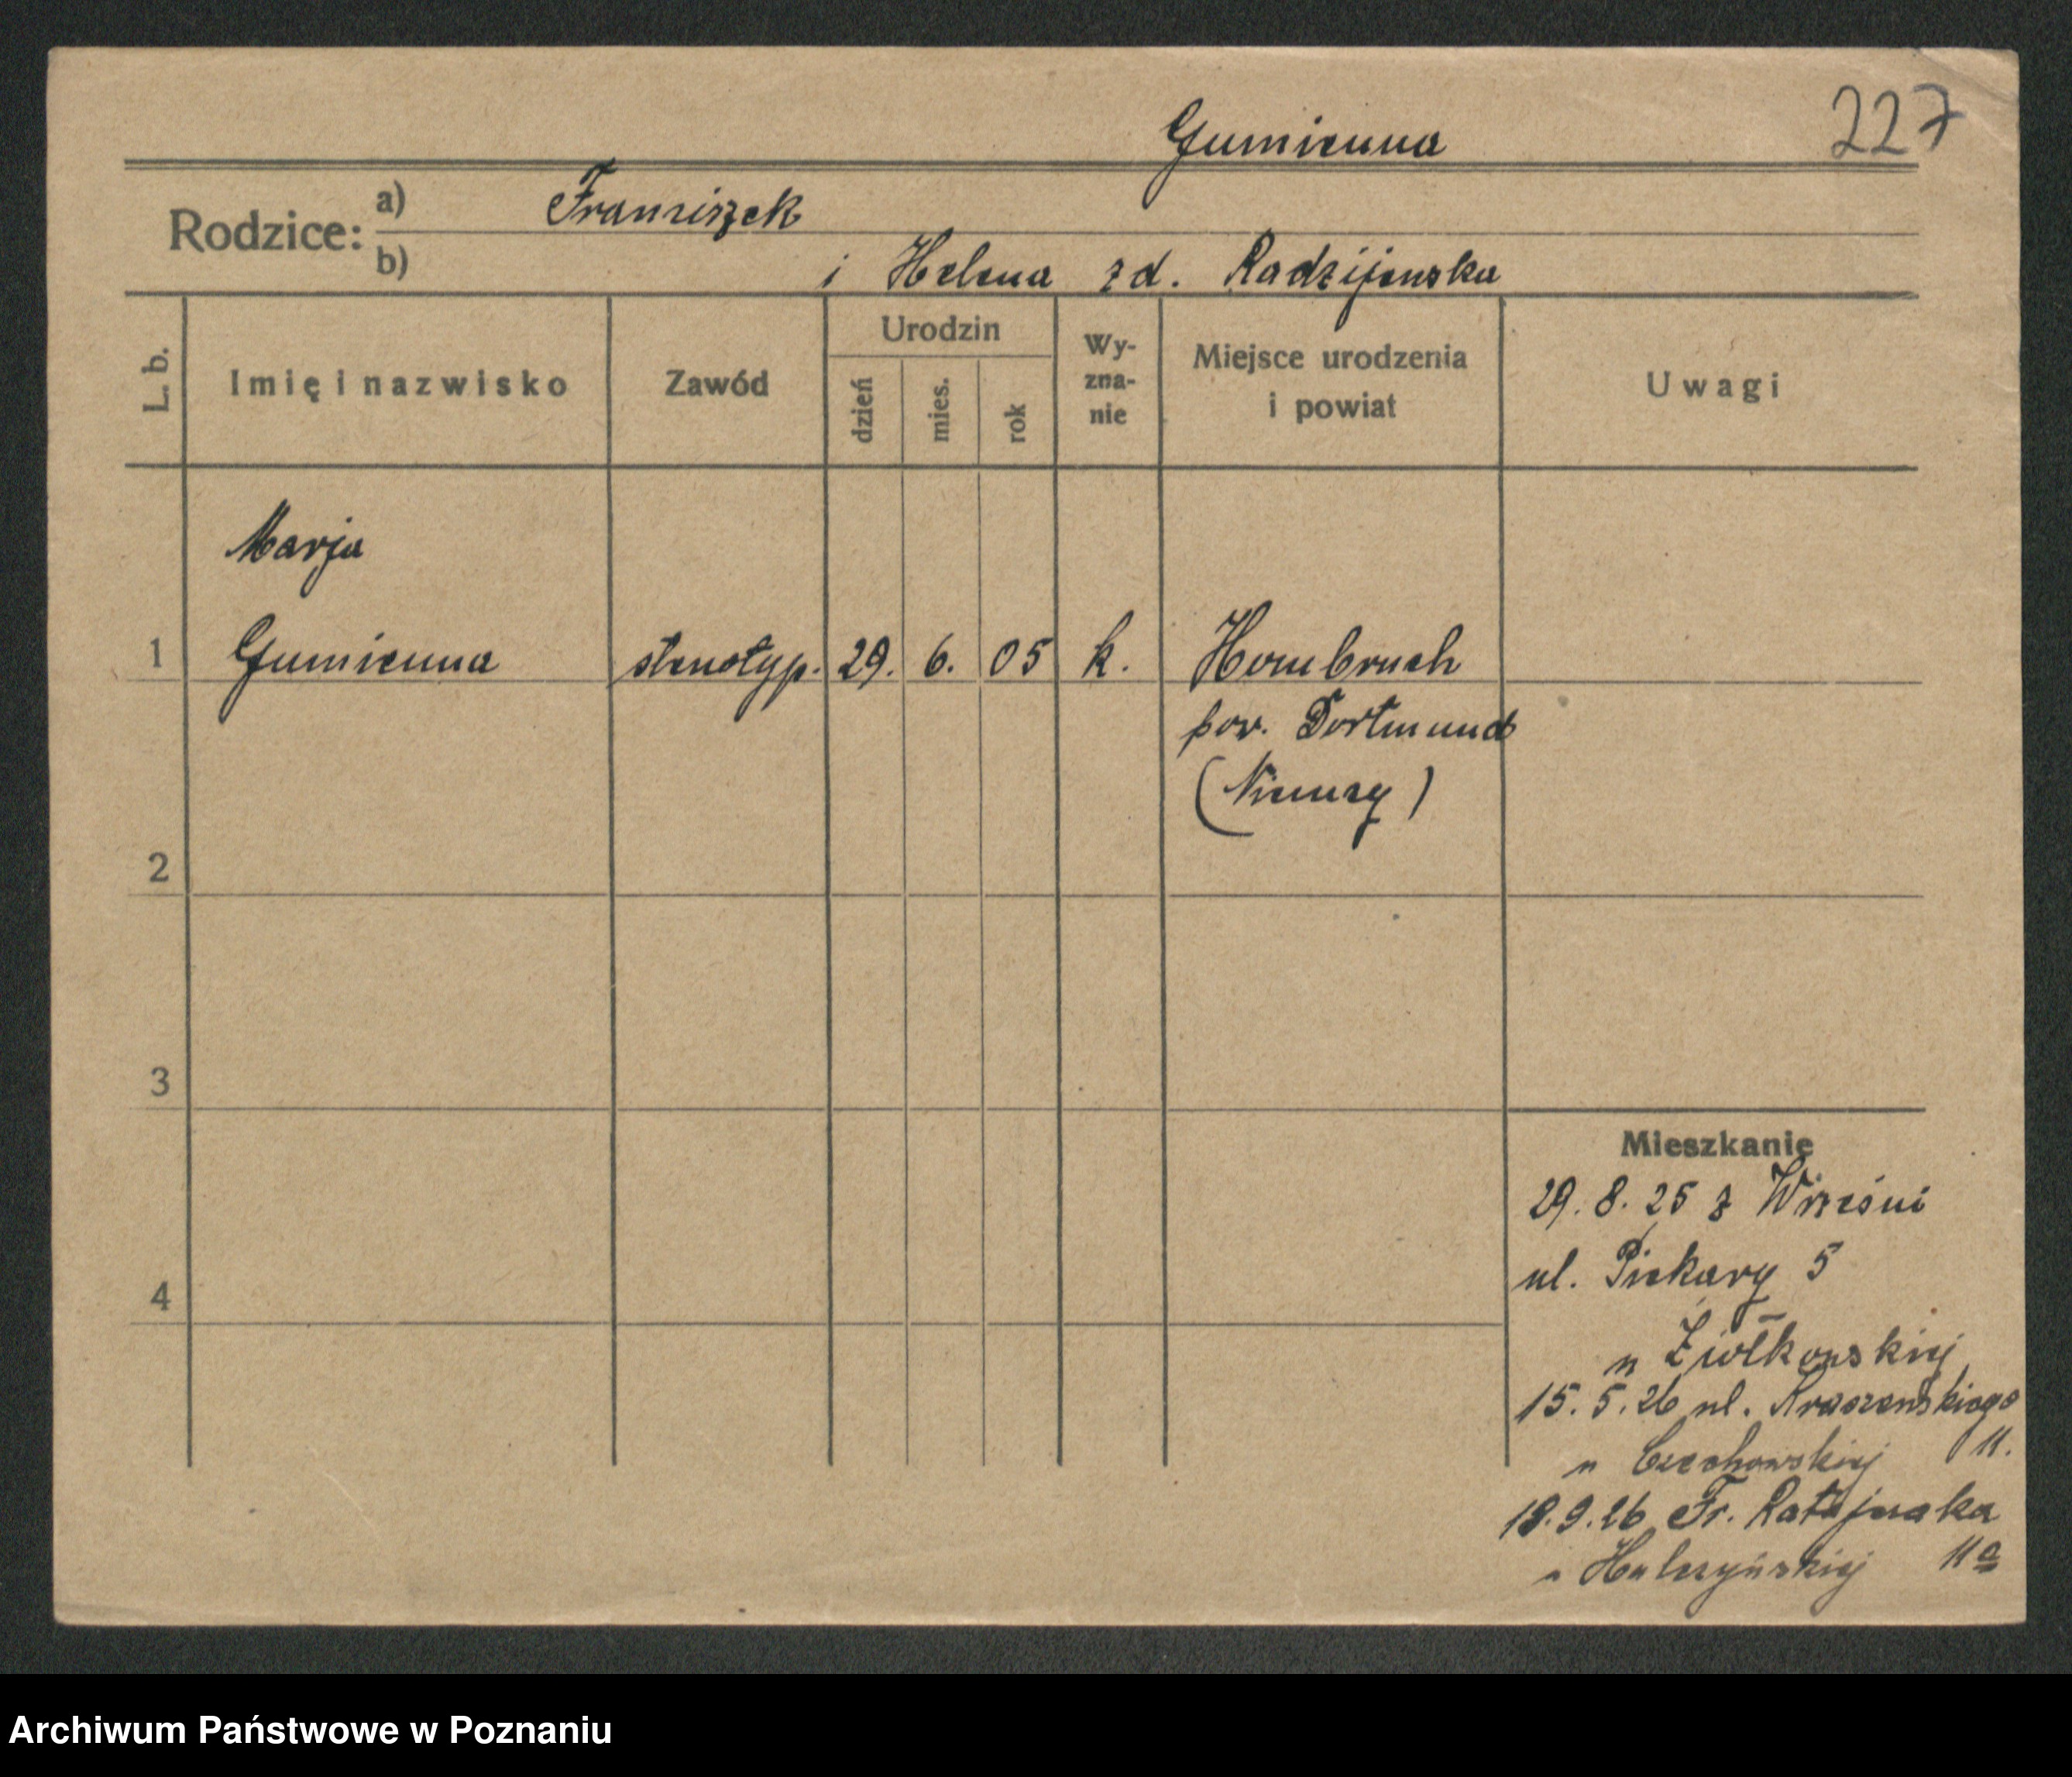 227
Gumienna
Rodzice: a) Franciszek
b) i Helena zd. Radzijewska
L. b. Imię i nazwisko Zawód Urodzin dzień mies. rok Wy-zna-nie Miejsce urodzenia i powiat Uwagi
Marja
1 Gumienna stenotyp. 29. 6. 05 k. Hombruch
pow. Dortmund
(Niemcy)
2
3
4
Mieszkanie
29. 8. 25 z Wrześni
ul. Piekary 5
u Ziółkowskiej
15. 5. 26 ul. Kraszewskiego
u Czechowskiej 11.
18. 9. 26 Fr. Ratajczaka
11a
Archiwum Państwowe w Poznaniu